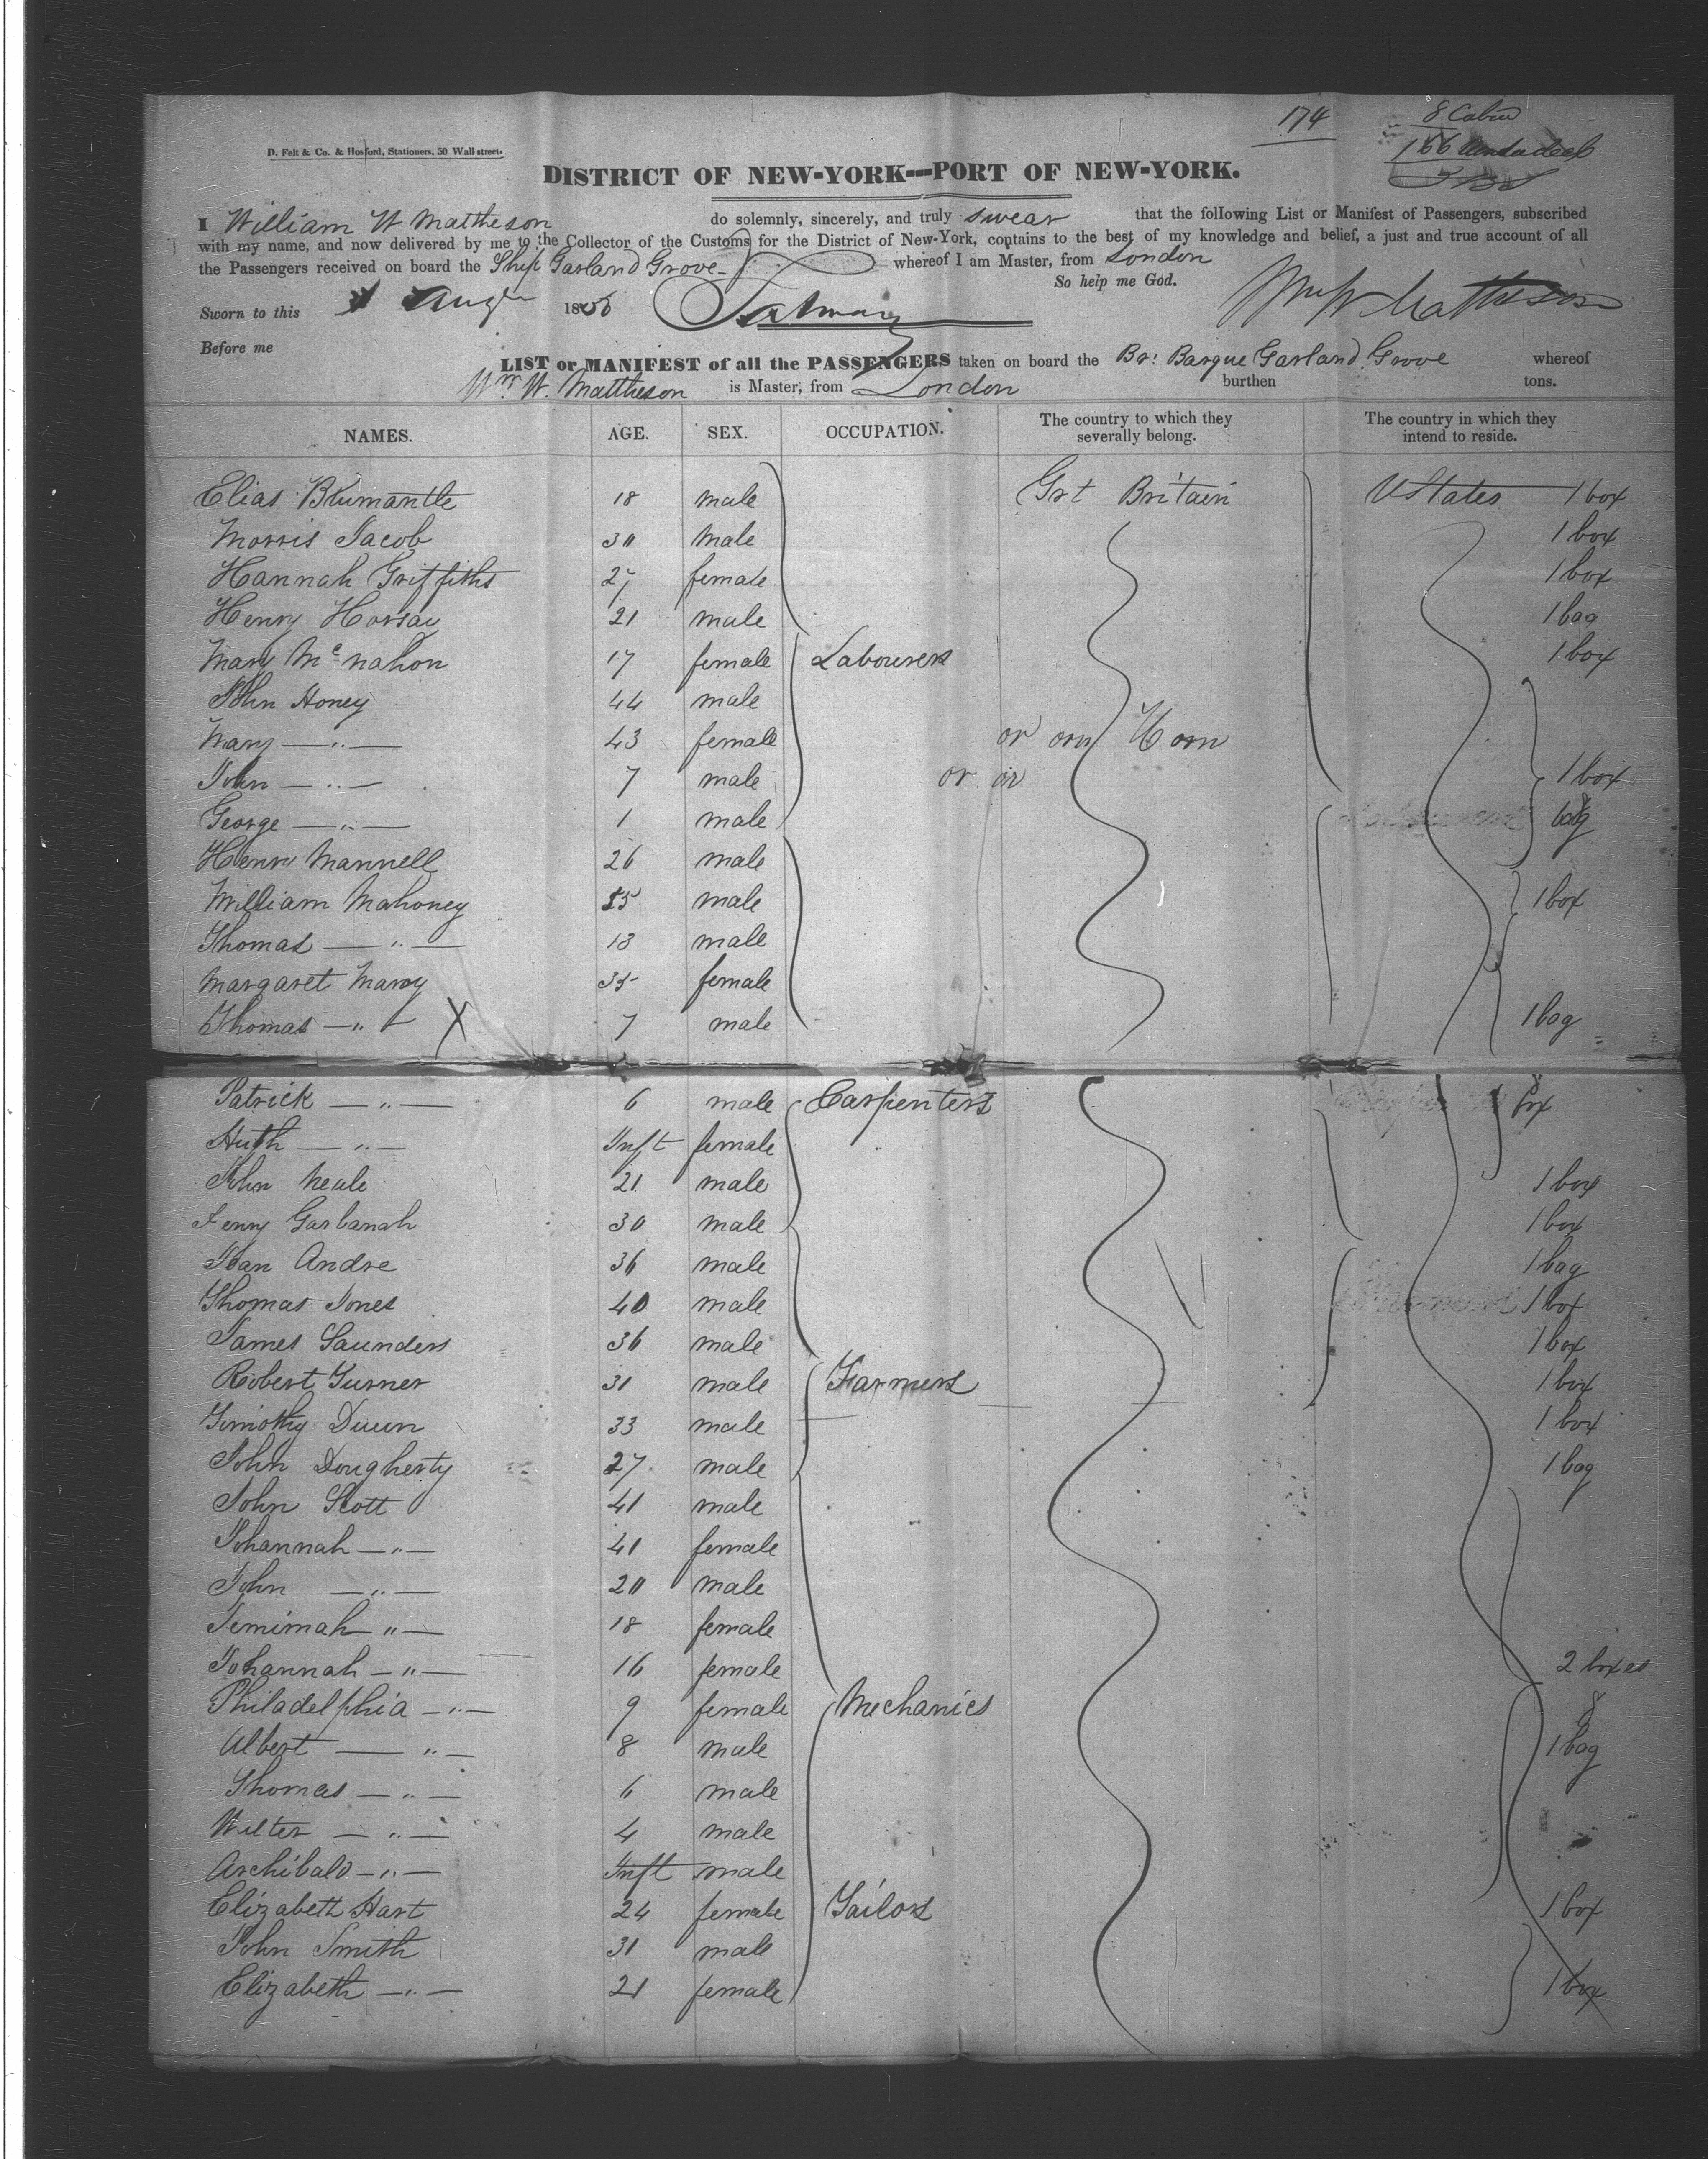 174
8 Cabin
166
D. Felt & Co. & Hosford, Stationers, 50 Wall street.
DISTRICT OF NEW-YORK---PORT OF NEW-YORK.
I William W Mattheson do solemnly, sincerely, and truly swear that the following List or Manifest of Passengers, subscribed
with my name, and now delivered by me to the Collector of the Customs for the District of New-York, contains to the best of my knowledge and belief, a just and true account of all
the Passengers received on board the Ship Garland Grove whereof I am Master, from London
So help me God.
Sworn to this Augt 18
Wm W Mattheson
Before me
LIST or MANIFEST of all the PASSENGERS taken on board the Br: Barque Garland Grove whereof
Wm W. Mattheson is Master, from London burthen tons.
NAMES. AGE. SEX. OCCUPATION. The country to which they severally belong. The country in which they intend to reside.
Elias Blumantle 18 male Grt Britain U States 1 box
Morris Jacob 30 male 1 box
Hannah Griffiths 27 female 1 box
Henry 21 male 1 bag
Mary Mc nahon 17 female Labourers 1 box
John Honey 44 male
Mary — " — 43 female or Horn
John — " — 7 male or or 1 box
George — " — 1 male bag
Henry Mannell 26 male
William Mahoney male 1 box
Thomas — " — 13 male
Margaret 35 female
Thomas — " — X 7 male 1 bag
Patrick — " — 6 male Carpenters box
— " — Inft female
John Neale 21 male 1 box
30 male 1 box
Jean Andre 36 male 1 bag
Thomas Jones 40 male 1 box
James Saunders 36 male 1 box
Robert Turner 31 male Farmers 1 box
Timothy 33 male 1 box
John Dougherty 27 male 1 bag
John Scott 41 male
Johannah — " — 41 female
John — " — 20 male
Jemimah " — 18 female
Johannah — " — 16 female 2 boxes
Philadelphia — " — 9 female Mechanics &
Albert — " — 8 male 1 bag
Thomas — " — 6 male
Walter — " — 4 male
Archibald — " — Inft male
Elizabeth Hart 24 female Tailors 1 box
John Smith 31 male
Elizabeth — " — 21 female 1 box